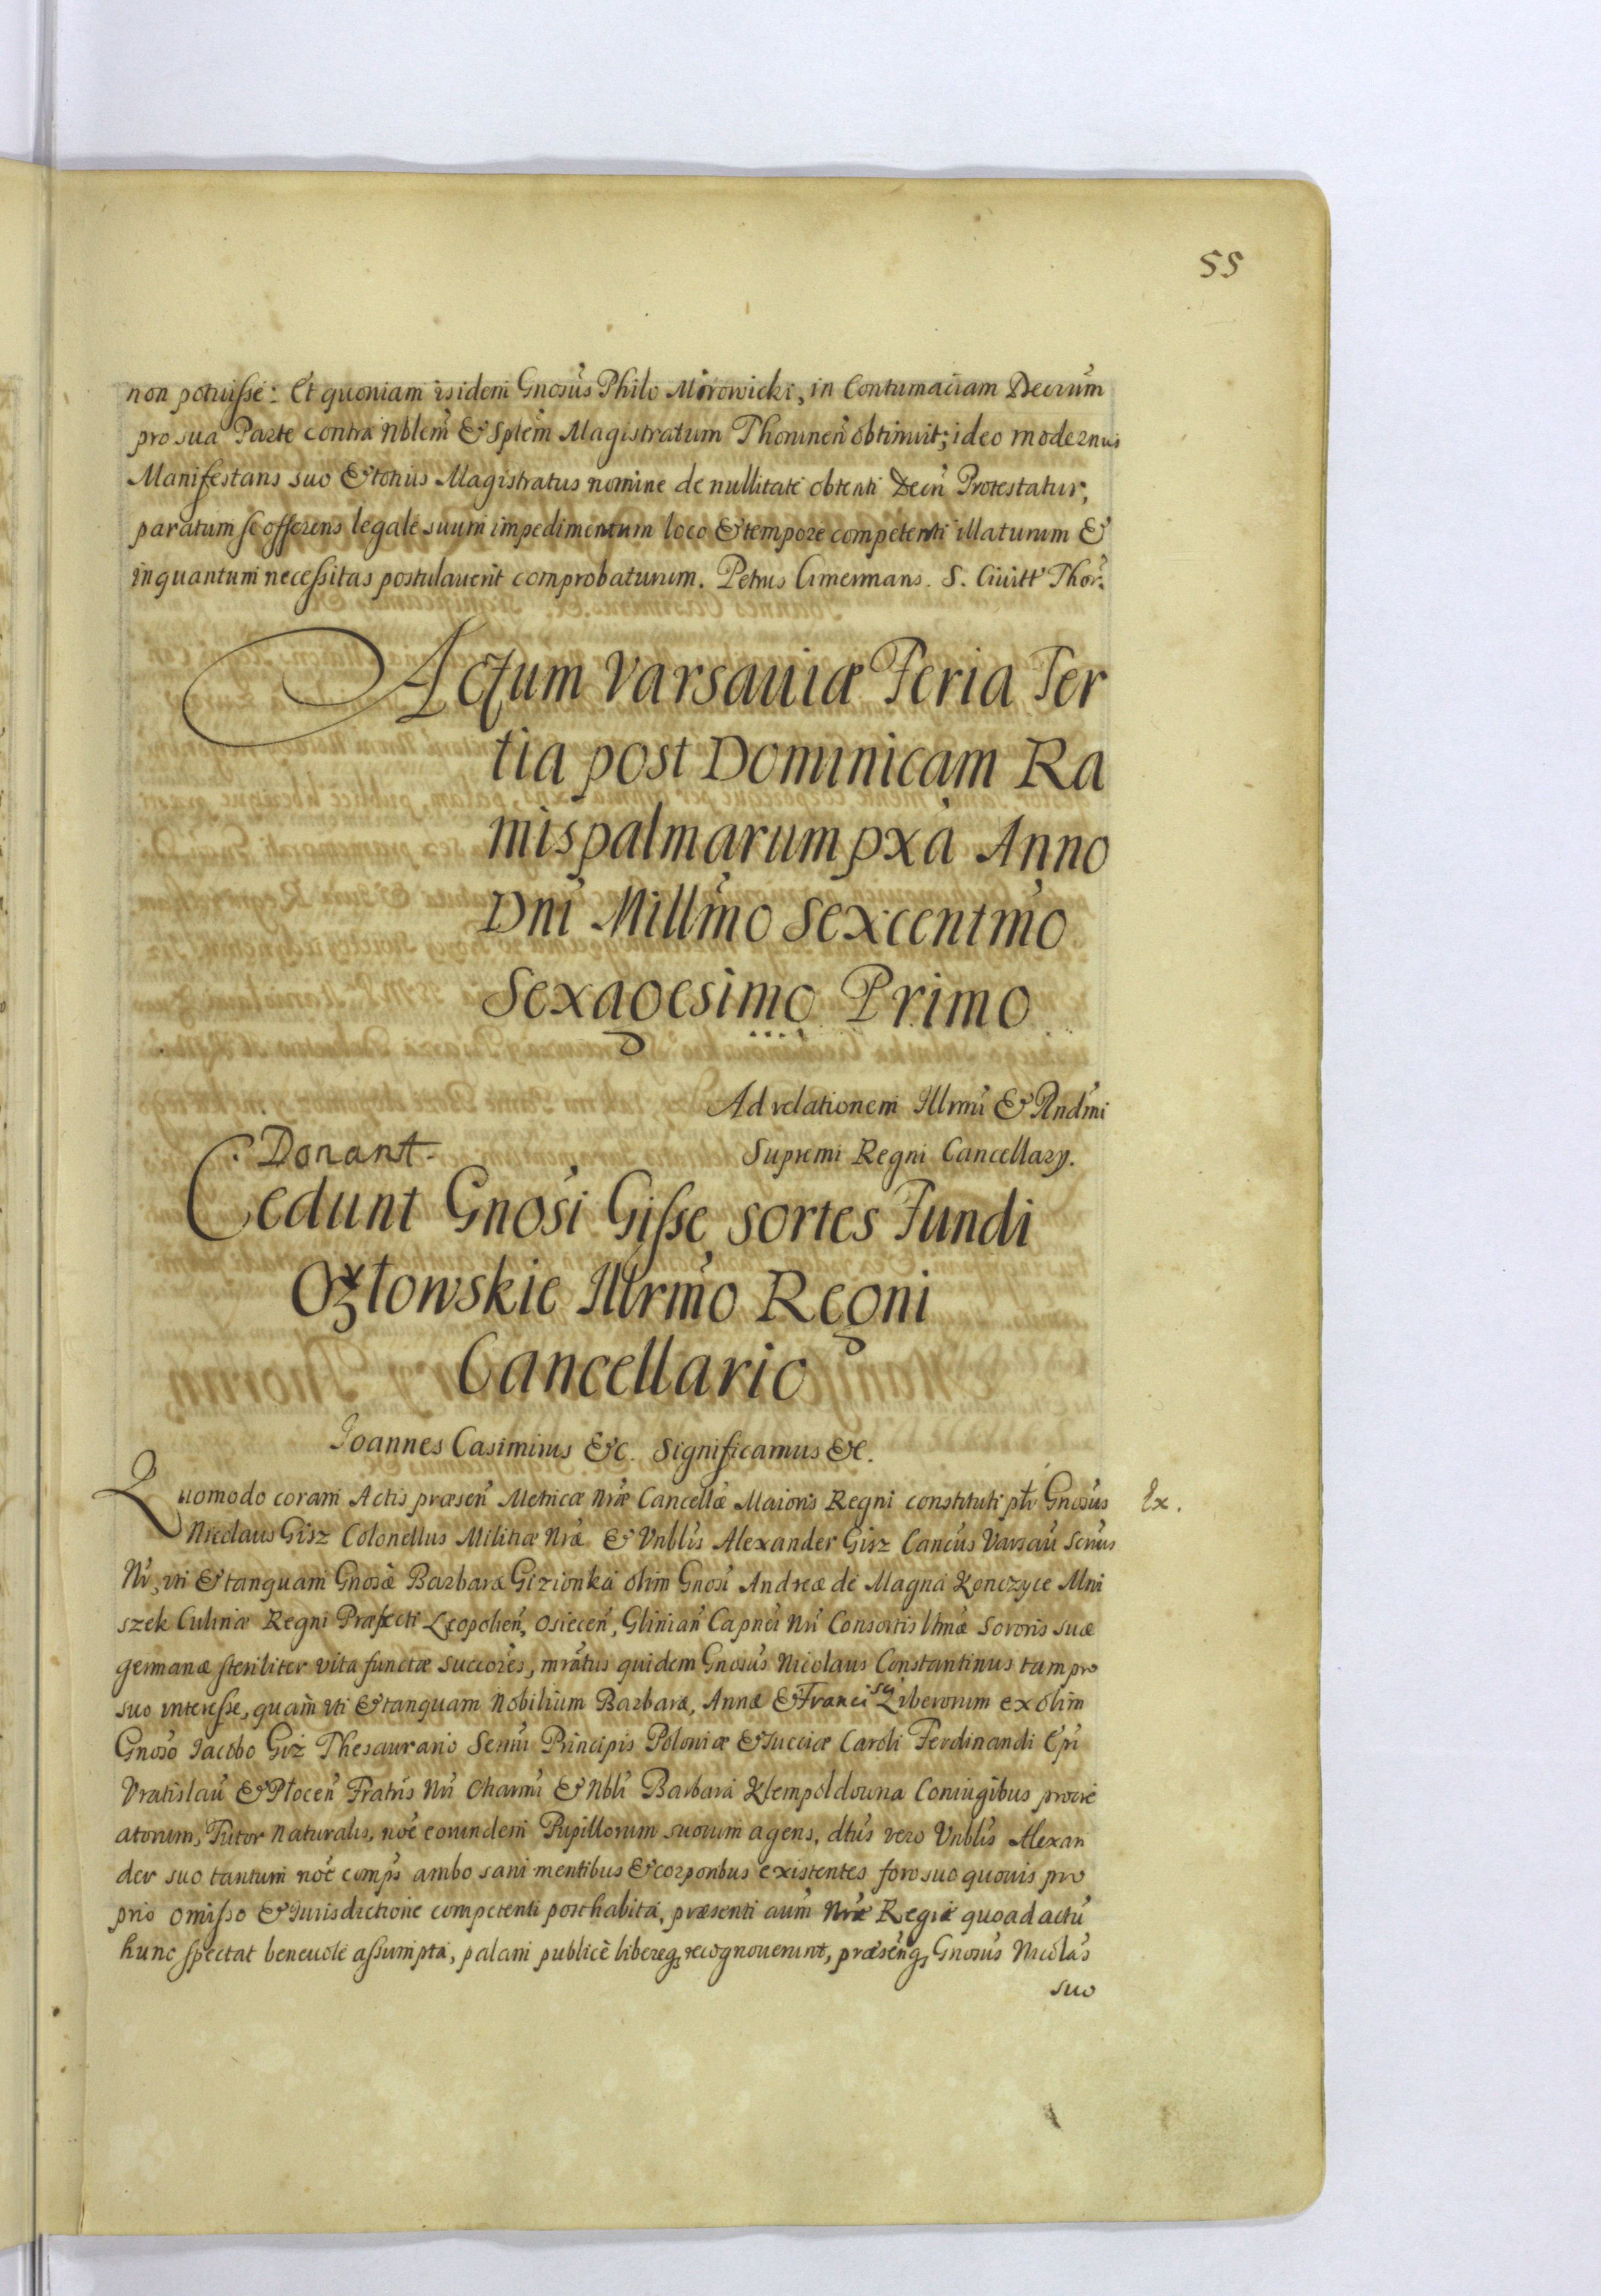 55
non potuisse: Et quoniam isidem Gnosus Philo Mirowicki, in Contumaciam Decrum
pro sua Parte contra Nblem & Splem Magistratum Thorunen obtinuit; ideo modernus
Manifestans suo & totius Magistratus nomine de nullitate obtenti Decri Protestatur,
paratum se offerens legale suum impedimentum loco & tempore competenti illaturum &
inquantum necessitas postulaverit comprobaturum. Petrus Cimermans. S. Civitt Thor:
Actum Varsaviæ Feria Ter
tia post Dominicam Ra
mis palmarum pxa Anno
Dni Millmo Sexcentmo
Sexagesimo Primo
Ad relationem Illrmi & Rndmi
Supremi Regni Cancellary.
Donant
Cedunt Gnosi Gisse sortes Fundi
Ożłowskie Illrmo Regni
Cancellario
Ioannes Casimirus &c. Significamus &c.
Quomodo coram Actis præsen Metricæ Nræ Cancellæ Maioris Regni constituti ptr Gnosus
Ex.
Nicolaus Gisz Colonellus Militiæ Nræ & Vnblis Alexander Gisz Cancus Varsau Servus
Nr, uti & tanquam Gnosæ Barbaræ Gizionka olim Gnosi Andreæ de Magna Konczyce Mni
szek Culinæ Regni Præfecti Leopolien, Osiecen, Glinian Capnei Nri Consortis Ulmæ Sororis suæ
germanæ steriliter vita functæ succores, mratus quidem Gnosus Nicolaus Constantinus tam pro
suo interesse, quam uti & tanquam Nobilium Barbaræ, Annæ & Francisci Liberorum ex olim
Gnoso Iacobo Giz Thesaurario Sermi Principis Poloniæ & Sueciæ Caroli Ferdinandi Epi
Vratislau & Płocen Fratris Nri Charmi & Nbli Barbara Klempoldowna Coniugibus procre
atorum, Tutor naturalis, noe eorundem Pupillorum suorum agens, dtus vero Vnblis Alexan
der suo tantum noe comps ambo sani mentibus & corporibus existentes foro suo quovis pro
prio omisso & Iurisdictione competenti posthabita, præsenti aum Nræ Regiæ quoad actu
hunc spectat benevole assumpta, palam publice libereq recognoverunt, præsenq Gnosus Nicolas
suo